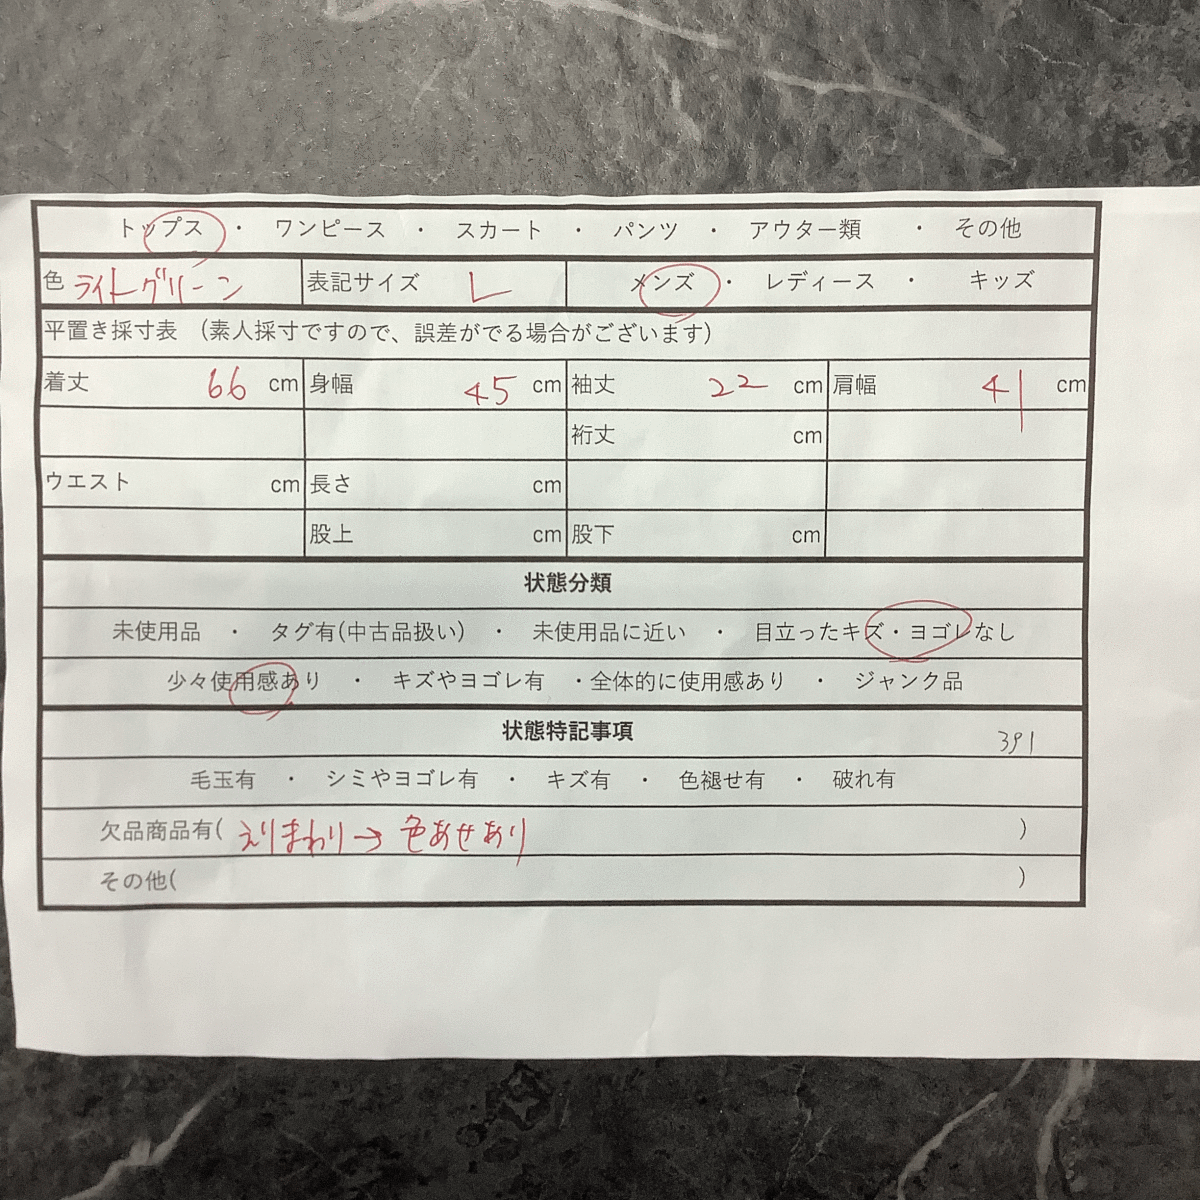 トップス ・ ワンピース ・ スカート ・ パンツ ・ アウター類 ・ その他
色 ライトグリーン 表記サイズ L メンズ ・ レディース ・ キッズ
平置き採寸表 （素人採寸ですので、誤差がでる場合がございます）
着丈 66 cm 身幅 45 cm 袖丈 22 cm 肩幅 41 cm
裄丈 cm
ウエスト cm 長さ cm
股上 cm 股下 cm
状態分類
未使用品 ・ タグ有(中古品扱い) ・ 未使用品に近い ・ 目立ったキズ・ヨゴレなし
少々使用感あり ・ キズやヨゴレ有 ・全体的に使用感あり ・ ジャンク品
状態特記事項 391
毛玉有 ・ シミやヨゴレ有 ・ キズ有 ・ 色褪せ有 ・ 破れ有
欠品商品有( えりまわり→色あせあり )
その他( )